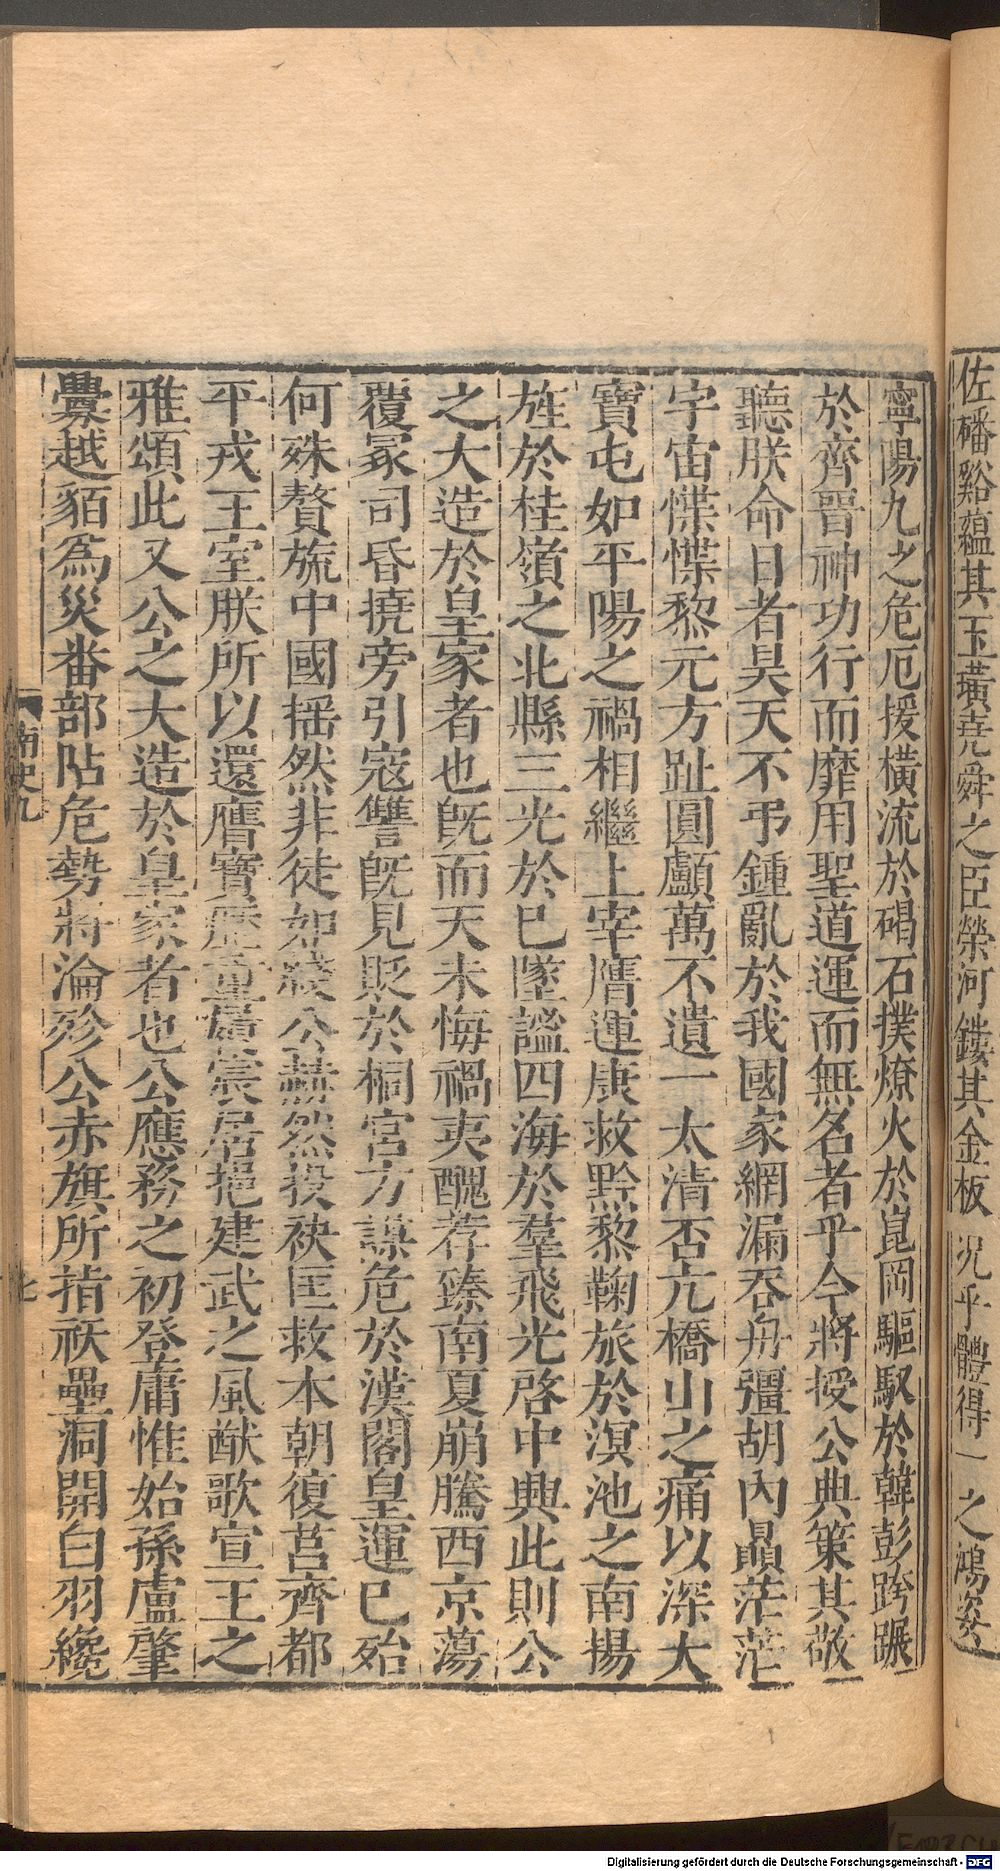 佐磻谿蘊其玉璜堯舜之臣榮河鏤其金板況乎體得一之鴻姿
寧陽九之危厄援橫流於碣石撲燎火於崑岡驅馭於韓彭跨躡
於齊晉神功行而靡用聖道運而無名者乎今將授公典策其敬
聽朕命日者昊天不弔鍾亂於我國家網漏吞舟彊胡內贔茫茫
宇宙慄慄黎元方趾圓顱萬不遺一太清否亢橋山之痛以深大
寶屯如平陽之禍相繼上宰膺運康救黔黎鞠旅於溟池之南揚
旌於桂嶺之北縣三光於已墜謐四海於羣飛光啓中興此則公
之大造於皇家者也旣而天未悔禍夷醜荐臻南夏崩騰西京蕩
覆冢司昏撓旁引寇讐旣見貶於桐宮方謀危於漢閣皇運已殆
何殊贅旒中國搖然非徒如綫公赫然投袂匡救本朝復莒齊都
平戎王室朕所以還膺寶歷重履宸居挹建武之風猷歌宣王之
雅頌此又公之大造於皇家者也公應務之初登庸惟始孫盧肇
釁越貊爲災番部阽危勢將淪殄公赤旗所指祅壘洞開白羽纔
南史九
Digitalisierung gefördert durch die Deutsche Forschungsgemeinschaft - DFG